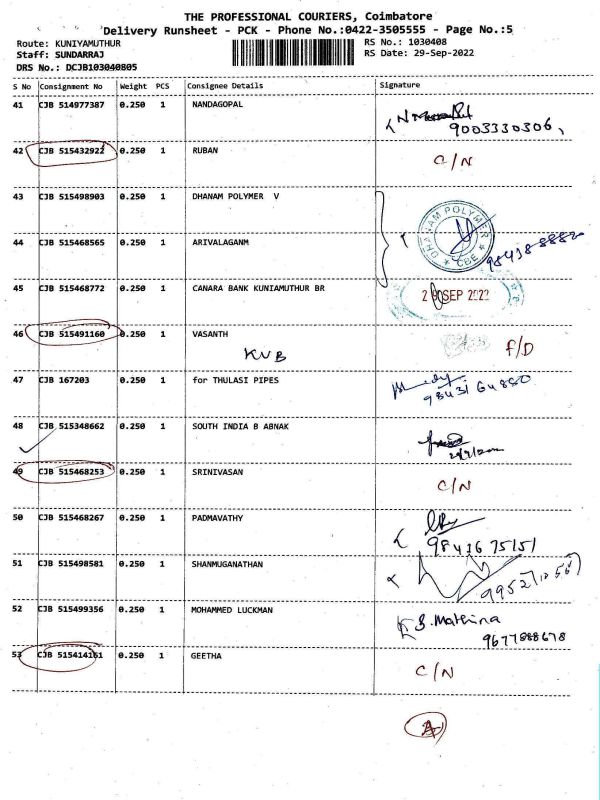 THE PROFESSIONAL COURIERS, Coimbatore
Delivery Runsheet - PCK - Phone No.:0422-3505555 - Page No.:5
Route: KUNIYAMUTHUR RS No.: 1030408
Staff: SUNDARRAJ RS Date: 29-Sep-2022
DRS No.: DCJB103040805
S No Consignment No Weight PCS Consignee Details Signature
41 CJB 514977387 0.250 1 NANDAGOPAL
9003330306,
42 CJB 515432922 0.250 1 RUBAN C/N
43 CJB 515498903 0.250 1 DHANAM POLYMER V
DHANAM POLYMER
CBE
44 CJB 515468565 0.250 1 ARIVALAGANM
45 CJB 515468772 0.250 1 CANARA BANK KUNIAMUTHUR BR
SEP 2022
46 CJB 515491160 0.250 1 VASANTH F/D
KVB
47 CJB 167203 0.250 1 for THULASI PIPES
48 CJB 515348662 0.250 1 SOUTH INDIA B ABNAK
49 CJB 515468253 0.250 1 SRINIVASAN C/N
50 CJB 515468267 0.250 1 PADMAVATHY
9843675151
51 CJB 515498581 0.250 1 SHANMUGANATHAN
52 CJB 515499356 0.250 1 MOHAMMED LUCKMAN
S. Mathina
9677888678
53 CJB 515414161 0.250 1 GEETHA C/N